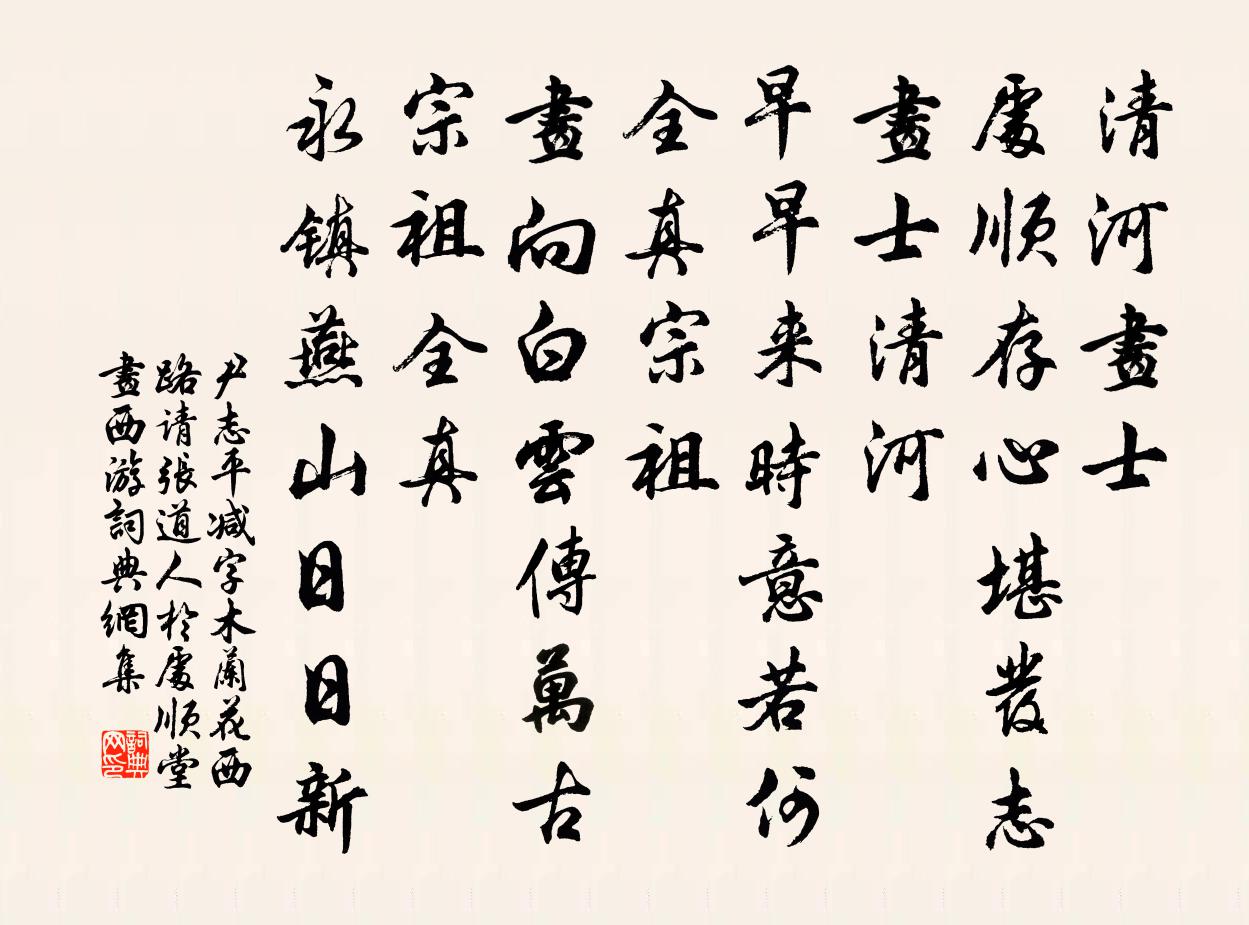 清河畫士
處順存心堪發志
畫士清河
早早来時意若何
全真宗祖
畫向白雲傳萬古
宗祖全真
永镇燕山日日新
尹志平减字木蘭花西
路请張道人於處順堂
畫西游詞典網集
詞典网印